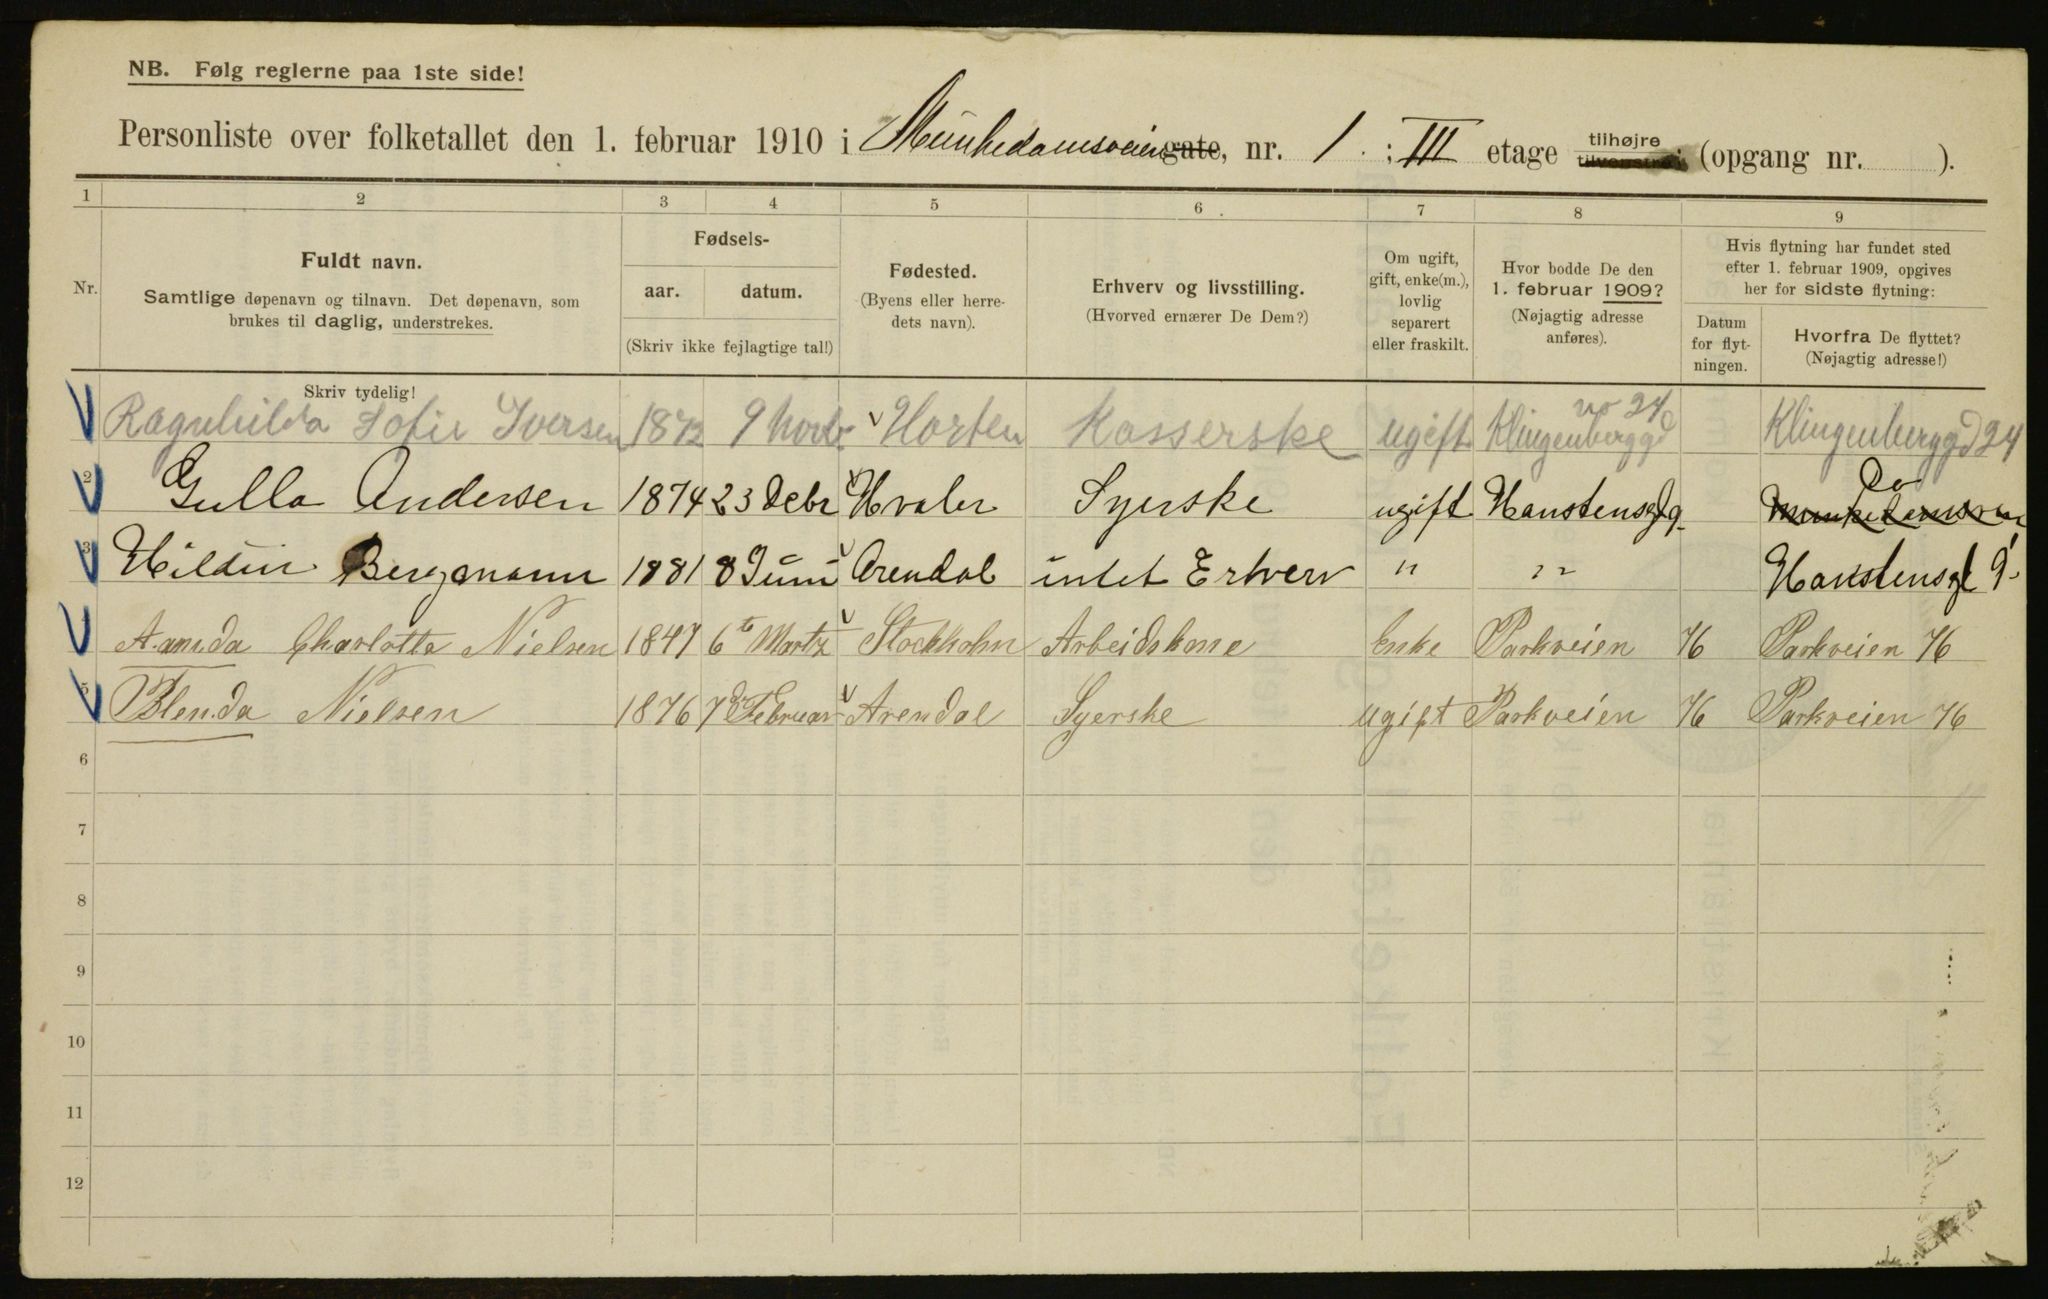 NB. Følg reglerne paa 1ste side!
Personliste over folketallet den 1. februar 1910 i Munkedamsveien gate, nr. 1 : III etage tilhøjre tilvenstre (opgang nr. ).
1 2 3 4 5 6 7 8 9
Nr.
Fuldt navn.
Samtlige døpenavn og tilnavn. Det døpenavn, som
brukes til daglig, understrekes.
Skriv tydelig!
Fødsels-
aar. datum.
(Skriv ikke fejlagtige tal!)
Fødested.
(Byens eller herre-
dets navn).
Erhverv og livsstilling.
(Hvorved ernærer De Dem?)
Om ugift,
gift, enke(m.),
lovlig
separert
eller fraskilt.
Hvor bodde De den
1. februar 1909?
(Nøjagtig adresse
anføres).
Hvis flytning har fundet sted
efter 1. februar 1909, opgives
her for sidste flytning:
Datum
for flyt-
ningen.
Hvorfra De flyttet?
(Nøjagtig adresse!)
Ragnhilda Sofie Iversen 1872 9 Kasserske Horten ugift Klingenberggd no 24 Klingenberggd 24
2 Gulla Andersen 1874 23 Debr Hvaler Syerske ugift Do
3 Bergmann 1881 8 Juni Arendal intet Erhverv " "
Charlotta Nielsen 1847 6te Martz Stockholm Arbeidskone Enke Parkveien 76 Parkveien 76
5 Blenda Nielsen 1876 7de Februar Arendal Syerske ugift Parkveien 76 Parkveien 76
6
7
8
9
10
11
12